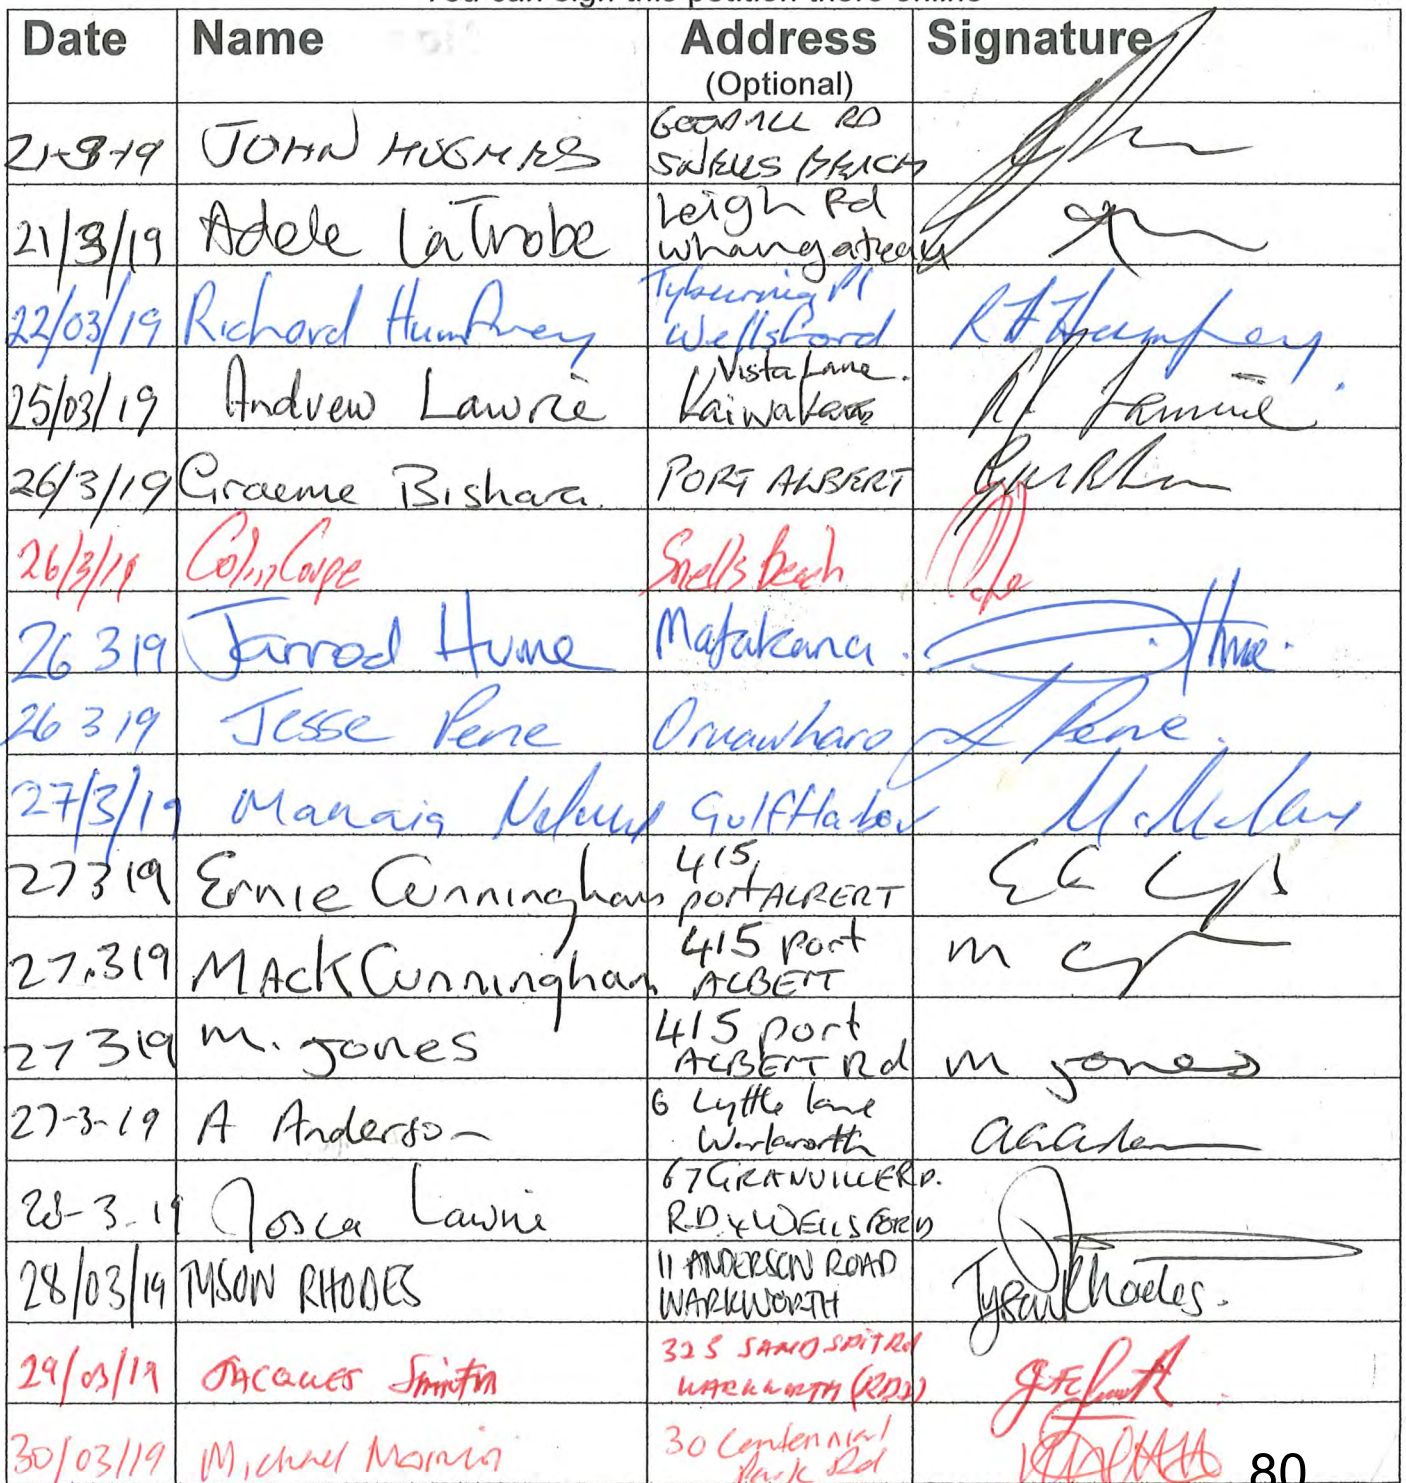 You can sign this petition there online
Date Name Address Signature
(Optional)
21-3-19 JOHN HUGHES GOODALL RD
SNELLS BEACH
21/3/19 Adele LaTrobe Leigh Rd
Whangateau
22/03/19 Richard Humfrey Pl
Wellsford R Humfrey
25/03/19 Andrew Lawrie Vista Lane.
Kaiwaka
26/3/19 Graeme Bishara. PORT ALBERT
26/3/19 Colin Coupe Snells Beach
26 3 19 Jarrod Hume Matakana. Hume.
26 3 19 Jesse Pene Oruawharo J Pene.
27/3/19 Manaia Gulf Harbor
27 3 19 Ernie Cunningham 415
port ALBERT
27.3 19 MAck Cunningham 415 port
ALBERT
27 3 19 M. Jones 415 port
ALBERT Rd m jones
27-3-19 A Anderson 6 Lyttle lane
Warkworth
28-3-19 Josca Lawrie 67 GRANVILLE RD.
R.D.4 WELLSFORD
28/03/19 TYSON RHODES 11 ANDERSON ROAD
WARKWORTH Tyson Rhodes.
29/03/19 JACQUES Smith 325 SANDSPIT Rd
WARKWORTH (RD2)
30/03/19 Michael Morris 30 Centennial
Park Rd
80